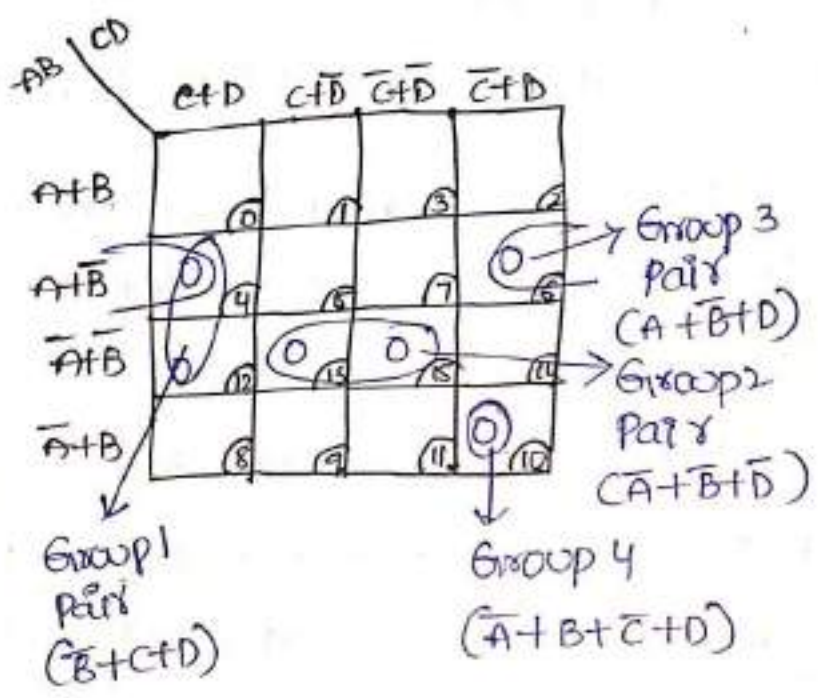 AB CD
C+D C+D̅ C̅+D̅ C̅+D
A+B
0 1 3 2
A+B̅
0 0
4 5 7 6
A̅+B̅
0 0 0
12 13 15 14
A̅+B
0
8 9 11 10
Group 3
Pair
(A+B̅+D)
Group2
Pair
(A̅+B̅+D̅)
Group1
Pair
(B̅+C+D)
Group 4
(A̅+B+C̅+D)